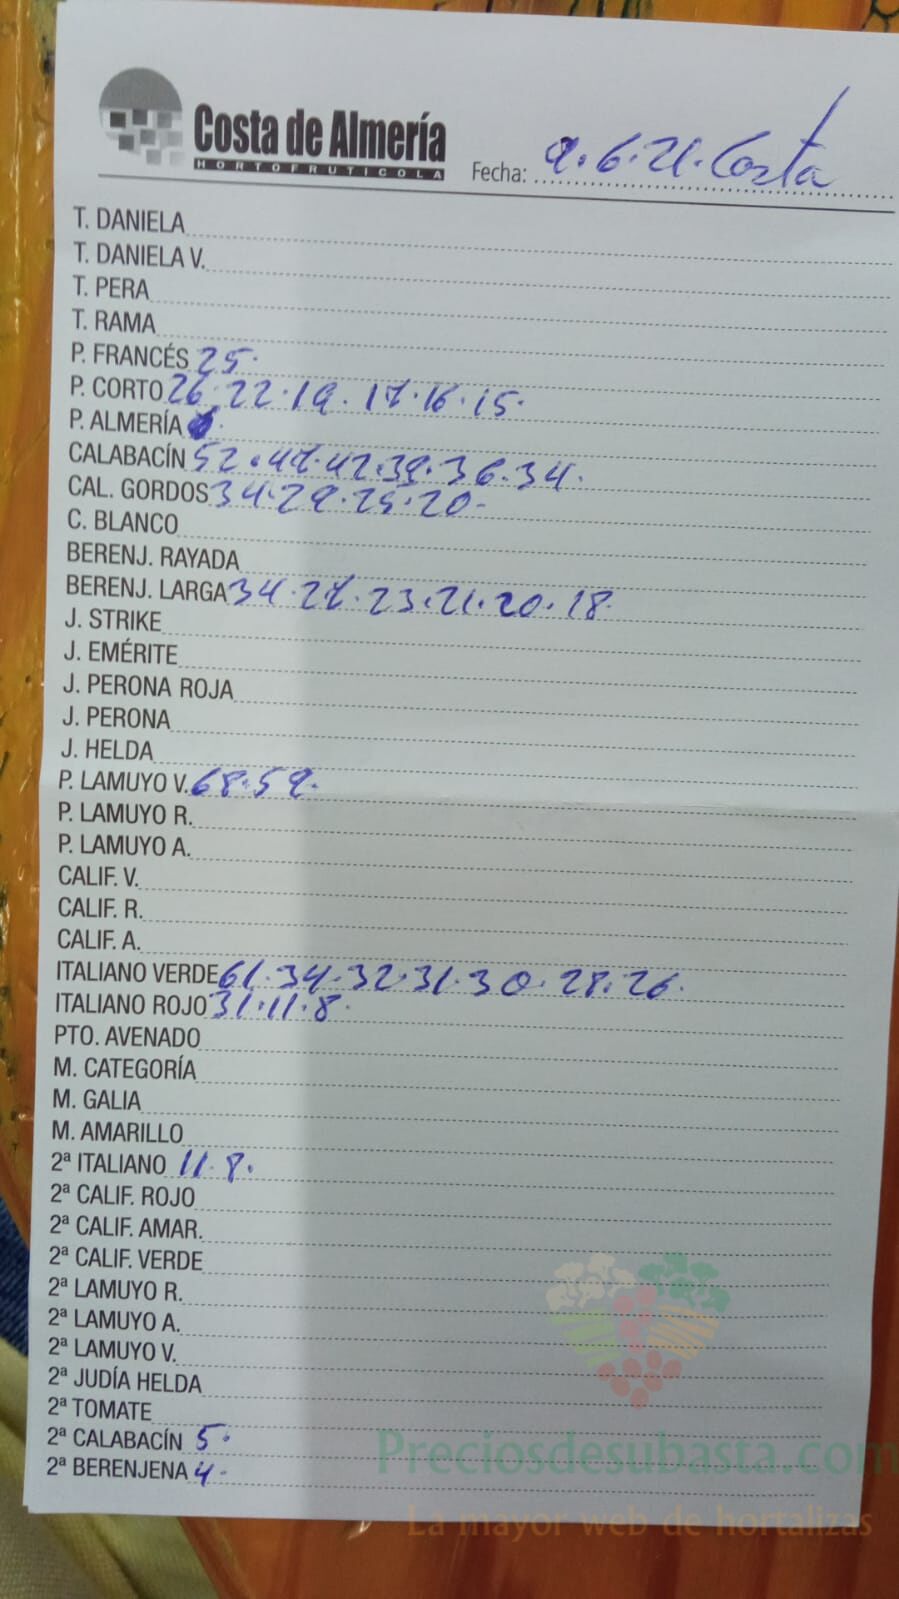 Costa de Almería
HORTOFRUTICOLA
Fecha: 9.6.21. Costa
T. DANIELA
T. DANIELA V.
T. PERA
T. RAMA
P. FRANCÉS 25.
P. CORTO 26.22.19.17.16.15.
P. ALMERÍA
CALABACÍN 52.47.42.39.36.34.
CAL. GORDOS 34.29.25.20-
C. BLANCO
BERENJ. RAYADA
BERENJ. LARGA 34.27.23.21.20.18.
J. STRIKE
J. EMÉRITE
J. PERONA ROJA
J. PERONA
J. HELDA
P. LAMUYO V. 68.59.
P. LAMUYO R.
P. LAMUYO A.
CALIF. V.
CALIF. R.
CALIF. A.
ITALIANO VERDE 61.34.32.31.30.28.26.
ITALIANO ROJO 31.11.8.
PTO. AVENADO
M. CATEGORÍA
M. GALIA
M. AMARILLO
2ª ITALIANO 11.8.
2ª CALIF. ROJO
2ª CALIF. AMAR.
2ª CALIF. VERDE
2ª LAMUYO R.
2ª LAMUYO A.
2ª LAMUYO V.
2ª JUDÍA HELDA
2ª TOMATE
2ª CALABACÍN 5.
2ª BERENJENA 4-
Preciosdesubasta.com
La mayor web de hortalizas